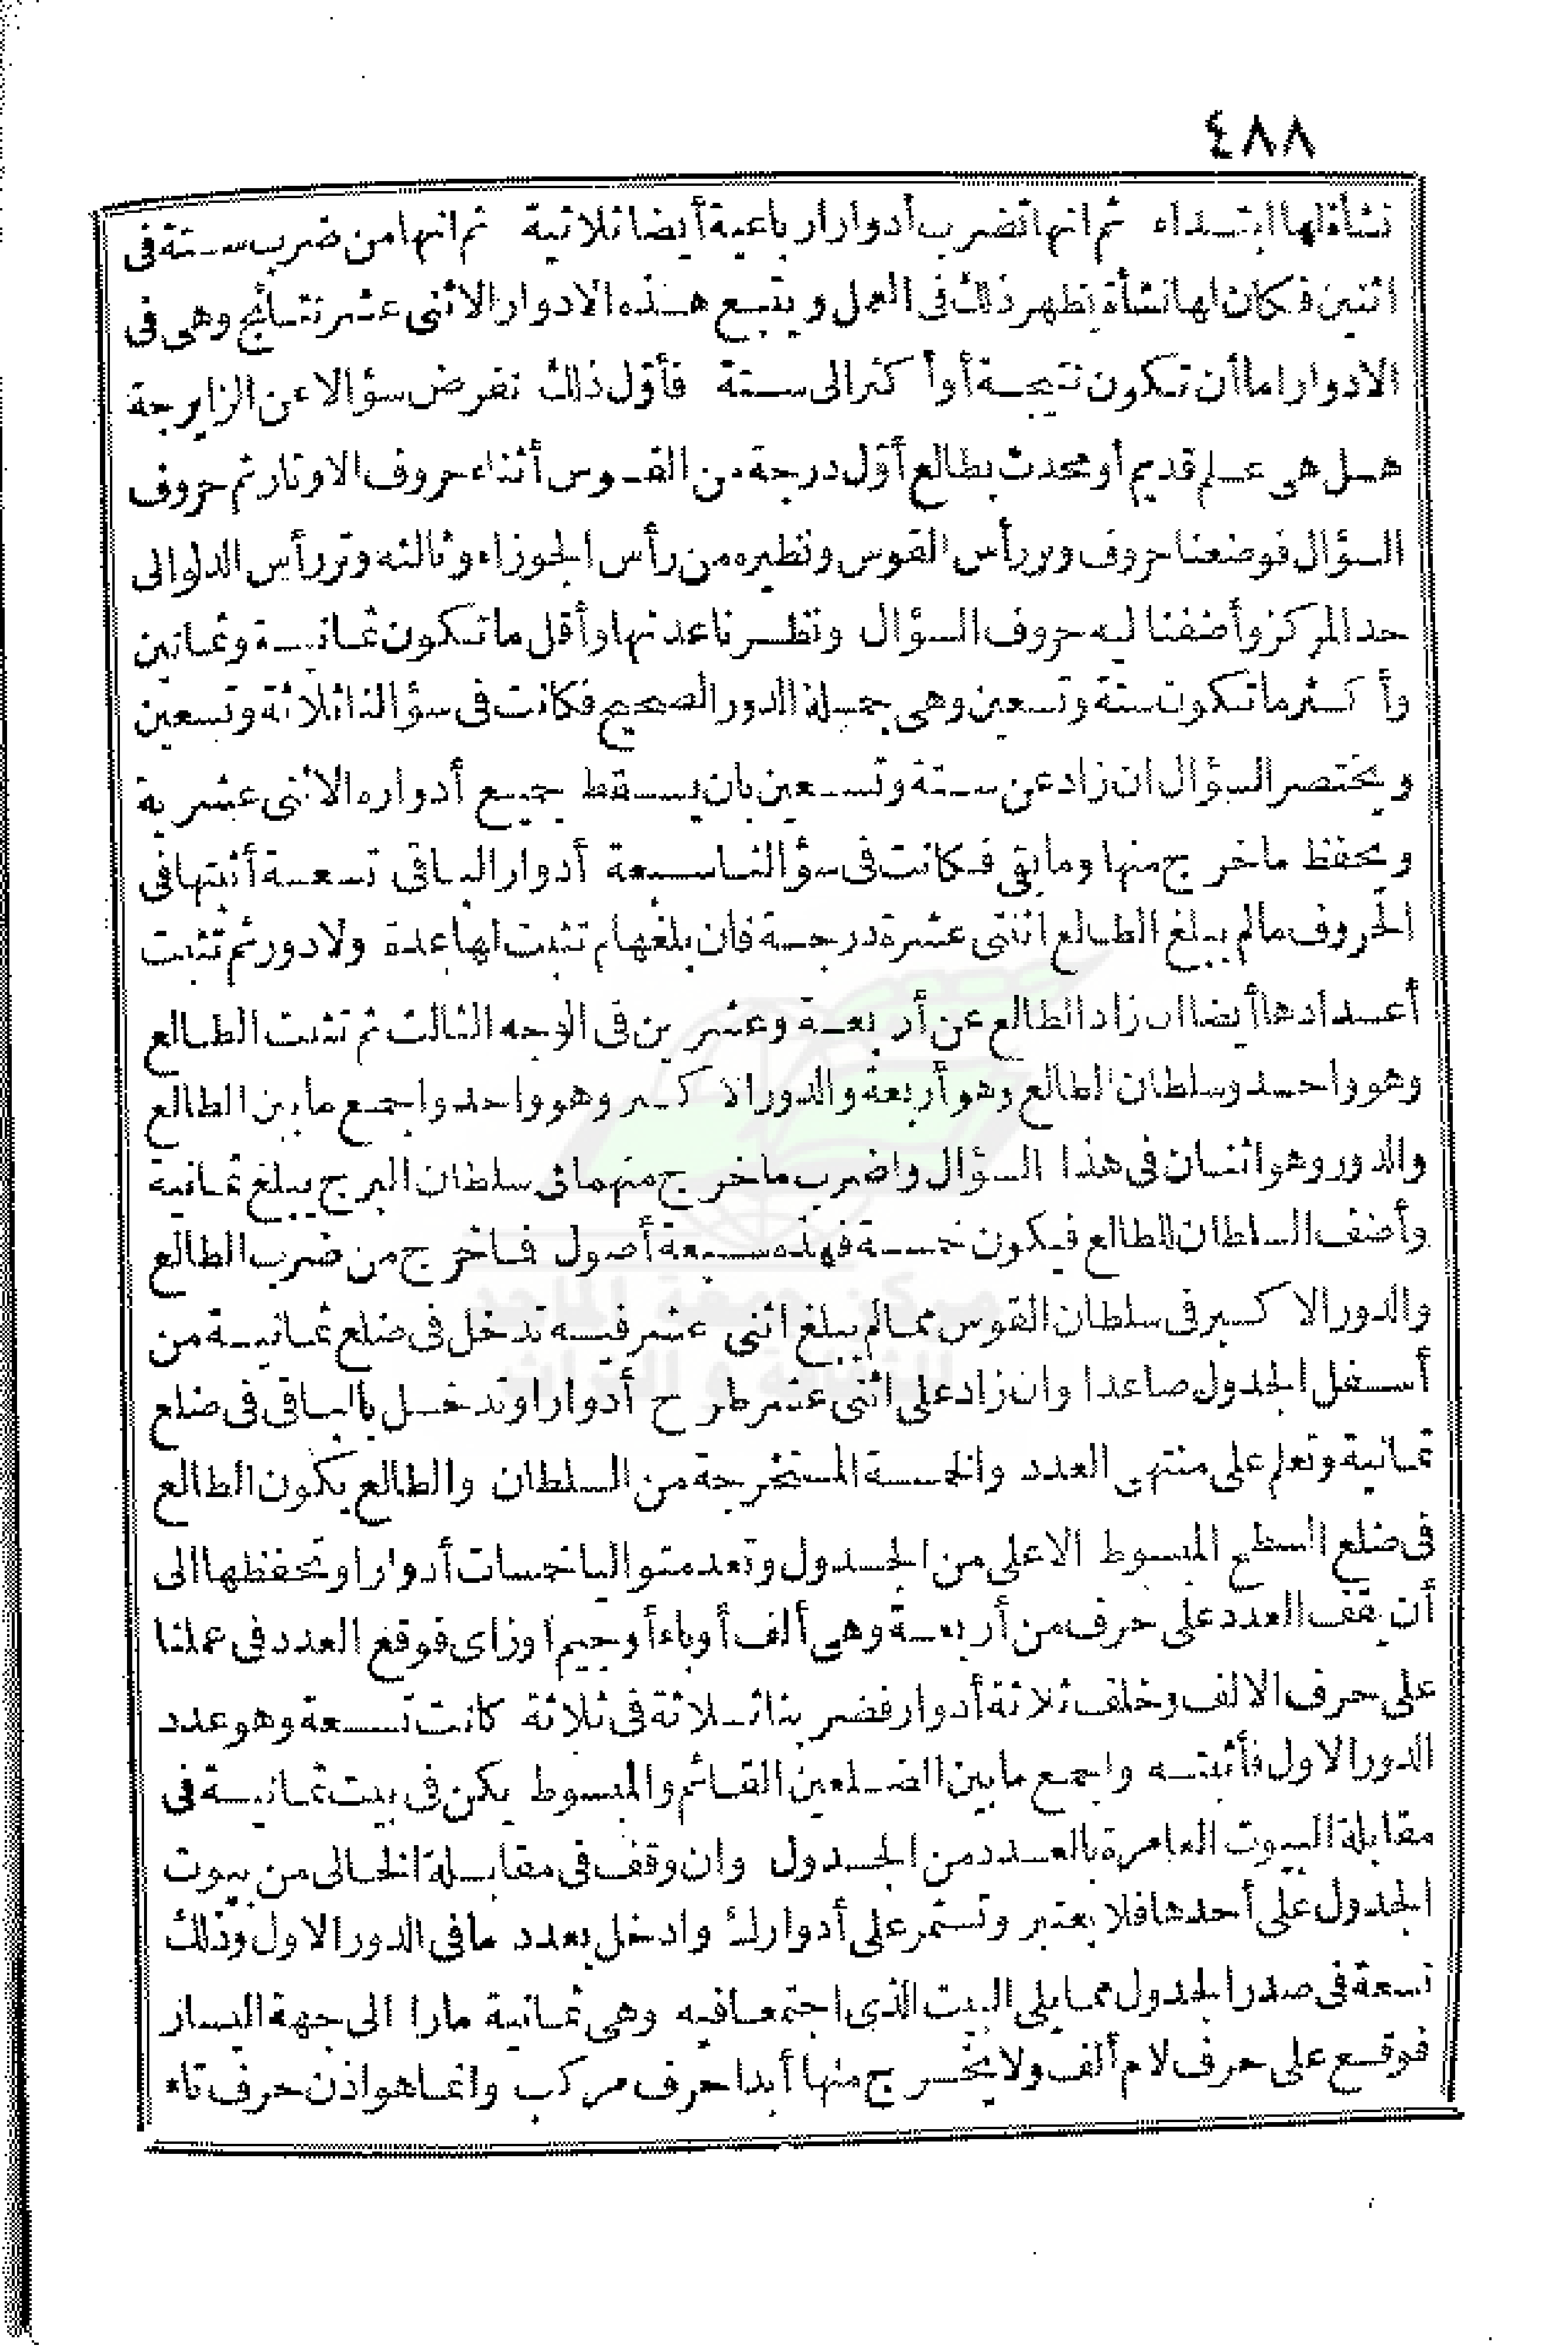 ٤٨٨
نشأة لها ابتداء ثم انها تضرب أدوارا رباعية أيضا ثلاثية ثم انها من ضرب ستة فى
اثنين فكان لها نشأة يظهر ذلك فى العمل ويتبع هذه الادوار الاثنى عشر نتائج وهى فى
الادوار اما أن تكون نتيجة أو أكثر الى ستة فأول ذلك نفرض سؤالا عن الزايرجة
هل هى علم قديم أو محدث بطالع أول درجة من القوس أثناء حروف الاوتار ثم حروف
السؤال فوضعنا حروف وتر رأس القوس ونظيره من رأس الجوزاء وثالثه وتر رأس الدلو الى
حد المركز وأضفنا ليه حروف السؤال ونظرنا عدتها وأقل ما تكون ثمانية وثمانين
وأكثر ما تكون ستة وتسعين وهى جملة الدور الصحيح فكانت فى سؤالنا ثلاثة وتسعين
ويختصر السؤال ان زاد عن ستة وتسعين بان يسقط جميع أدواره الاثنى عشرية
ويحفظ ما خرج منها وما بقى فكانت فى سؤالنا سبعة أدوار الباقى تسعة أثبتها فى
الحروف ما لم يبلغ الطالع اثنتى عشرة درجة فان بلغها لم تثبت لها عدة ولا دور ثم تثبت
أعدادها أيضا ان زاد الطالع عن أربعة وعشرين فى الوجه الثالث ثم تثبت الطالع
وهو واحد وسلطان الطالع وهو أربعة والدور الاكبر وهو واحد واجمع ما بين الطالع
والدور وهو اثنان فى هذا السؤال واضرب ما خرج منهما فى سلطان البرج يبلغ ثمانية
وأضف السلطان للطالع فيكون خمسة فهذه سبعة أصول فما خرج من ضرب الطالع
والدور الاكبر فى سلطان القوس مما لم يبلغ اثنى عشر فيه تدخل فى ضلع ثمانية من
أسفل الجدول صاعدا وان زاد على اثنى عشر طرح أدوارا وتدخل بالباقى فى ضلع
ثمانية وتعلم على منتهى العدد والخمسة المستخرجة من السلطان والطالع يكون الطالع
فى ضلع السطح المبسوط الاعلى من الجدول وتعد متواليا خمسات أدوارا وتحفظها الى
أن يقف العدد على حرف من أربعة وهى ألف أو باء أو جيم او زاى فوقع العدد فى عملنا
على حرف الالف وخلف ثلاثة أدوار فضربنا ثلاثة فى ثلاثة كانت تسعة وهو عدد
الدور الاول فأثبته واجمع ما بين الضلعين القائم والمبسوط يكن فى بيت ثمانية فى
مقابلة البيوت العامرة بالعدد من الجدول وان وقف فى مقابلة الخالى من بيوت
الجدول على أحدها فلا يعتبر وتستمر على أدوارك وادخل بعدد ما فى الدور الاول وذلك
تسعة فى صدر الجدول مما يلى البيت الذى اجتمعا فيه وهى ثمانية مارا الى جهة اليسار
فوقع على حرف لام ألف ولا يخرج منها أبدا حرف مركب وانما هو اذن حرف تاء
مركز جمعة الماجد
للثقافة و التراث